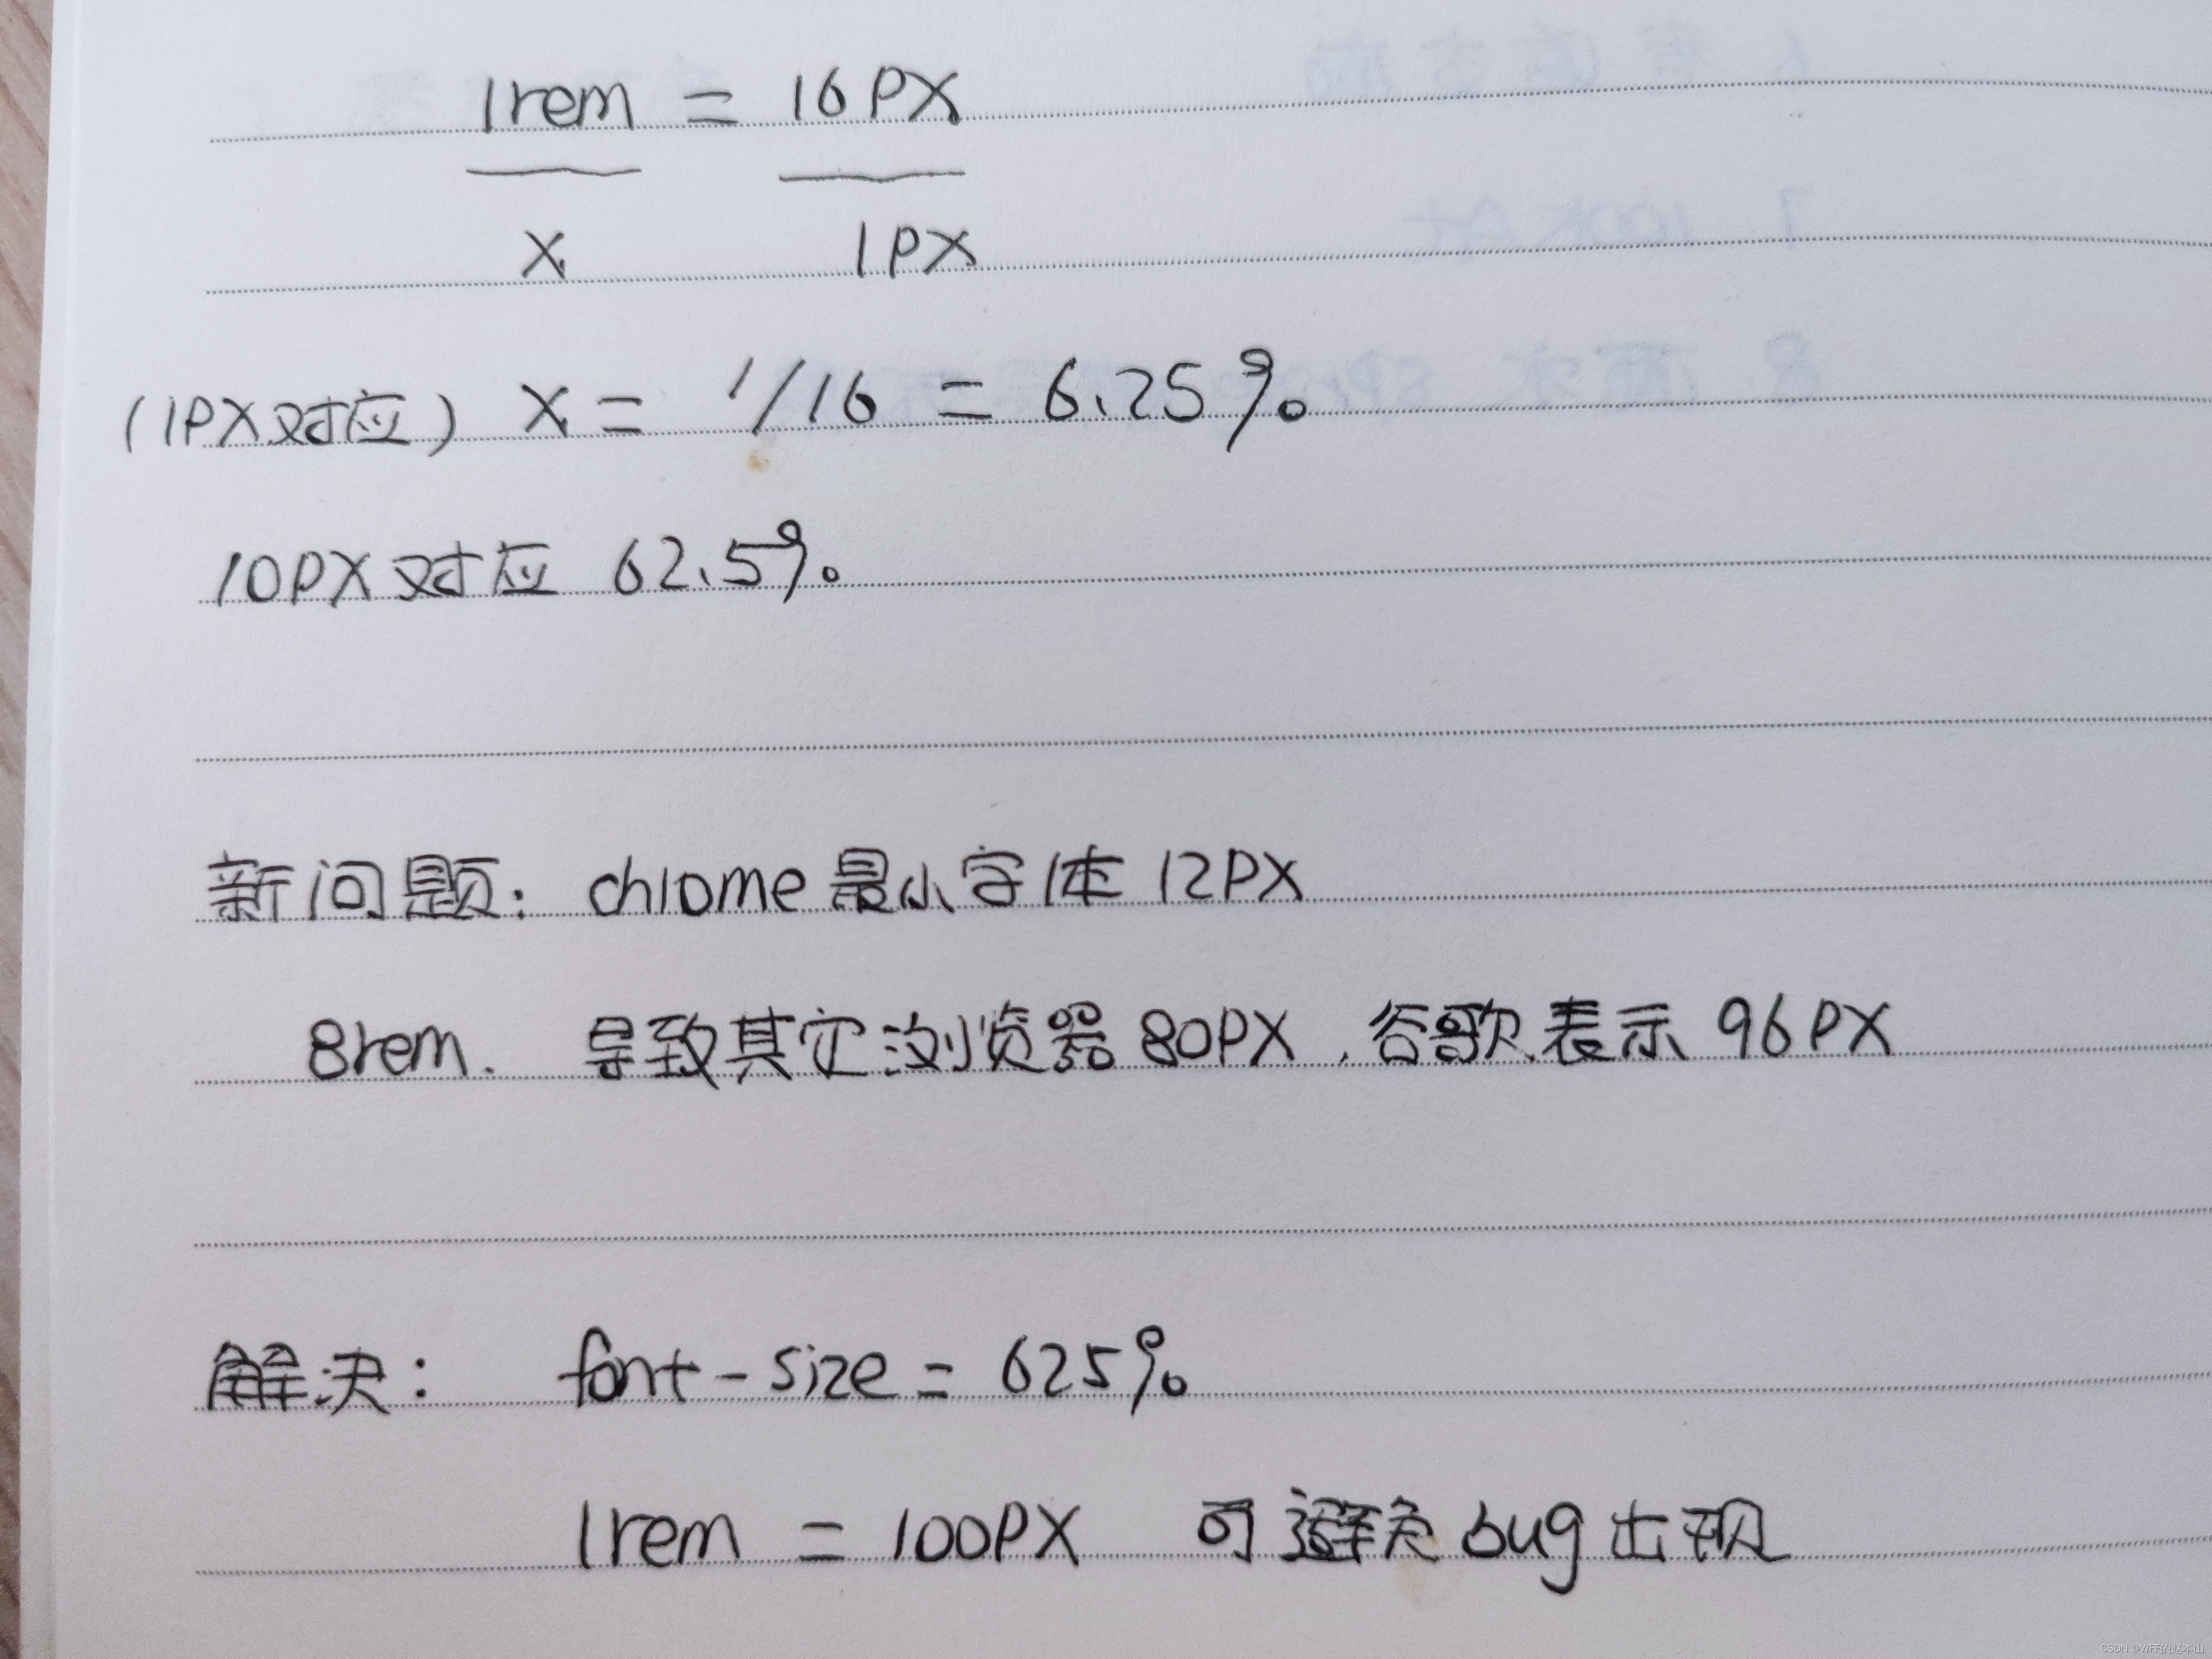 1rem = 16PX
X 1PX
(1PX对应) X = 1/16 = 6.25%
10PX对应 62.5%
新问题: chrome最小字体12PX
8rem. 导致其它浏览器80PX,谷歌表示96PX
解决: font-size = 625%
1rem = 100PX 可避免bug出现